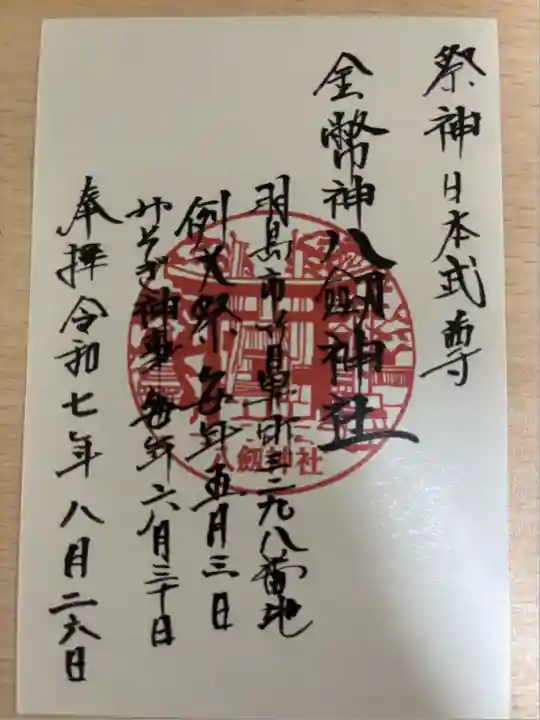 祭神日本武尊
金幣神八劔神社
羽島市正木町三二九八番地
例大祭、毎年五月三日
みそぎ神事毎年六月三十日
奉拝令和七年八月二六日
八劔神社